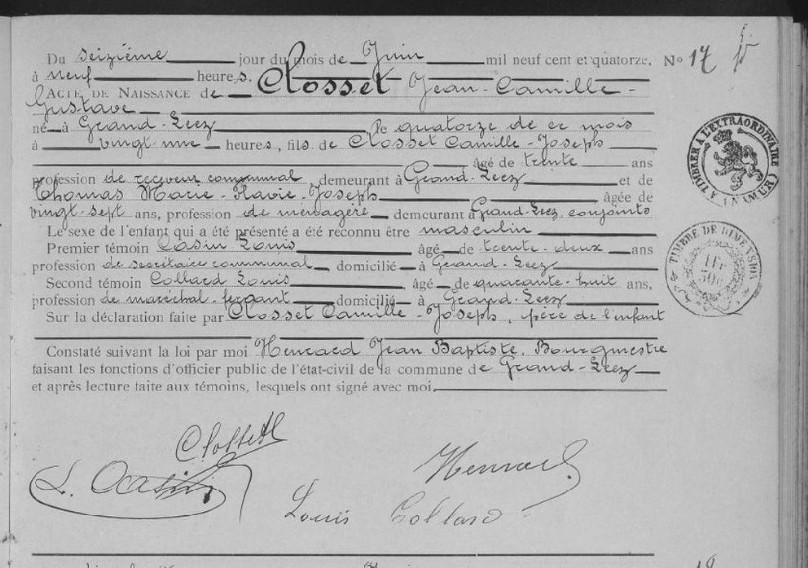 Du seizième jour du mois de Juin mil neuf cent et quatorze, No 17
à neuf heures.
ACTE DE NAISSANCE de Closset Jean-Camille-
Gustave
né à Grand-Leez le quatorze de ce mois
à vingt une heures, fils de Closset Camille-Joseph
âgé de trente ans
profession de receveur communal, demeurant à Grand-Leez et de
Thomas Marie-Flavie-Joseph âgée de
vingt-sept ans, profession de ménagère demeurant à Grand-Leez, conjoints
Le sexe de l'enfant qui a été présenté a été reconnu être masculin
Premier témoin Casin Louis âgé de trente-deux ans
profession de secrétaire communal domicilié à Grand-Leez
Second témoin Collard Louis, âgé de quarante-huit ans,
profession de maréchal-ferrant domicilié à Grand-Leez
Sur la déclaration faite par Closset Camille-Joseph, père de l'enfant
Constaté suivant la loi par moi Henrard Jean Baptiste, Bourgmestre
faisant les fonctions d'officier public de l'état-civil de la commune de Grand-Leez
et après lecture faite aux témoins, lesquels ont signé avec moi.
TIMBRER A L'EXTRAORDINAIRE A NAMUR
TIMBRE DE DIMENSION
Closset
L. Casin
Henrard
Louis Collard